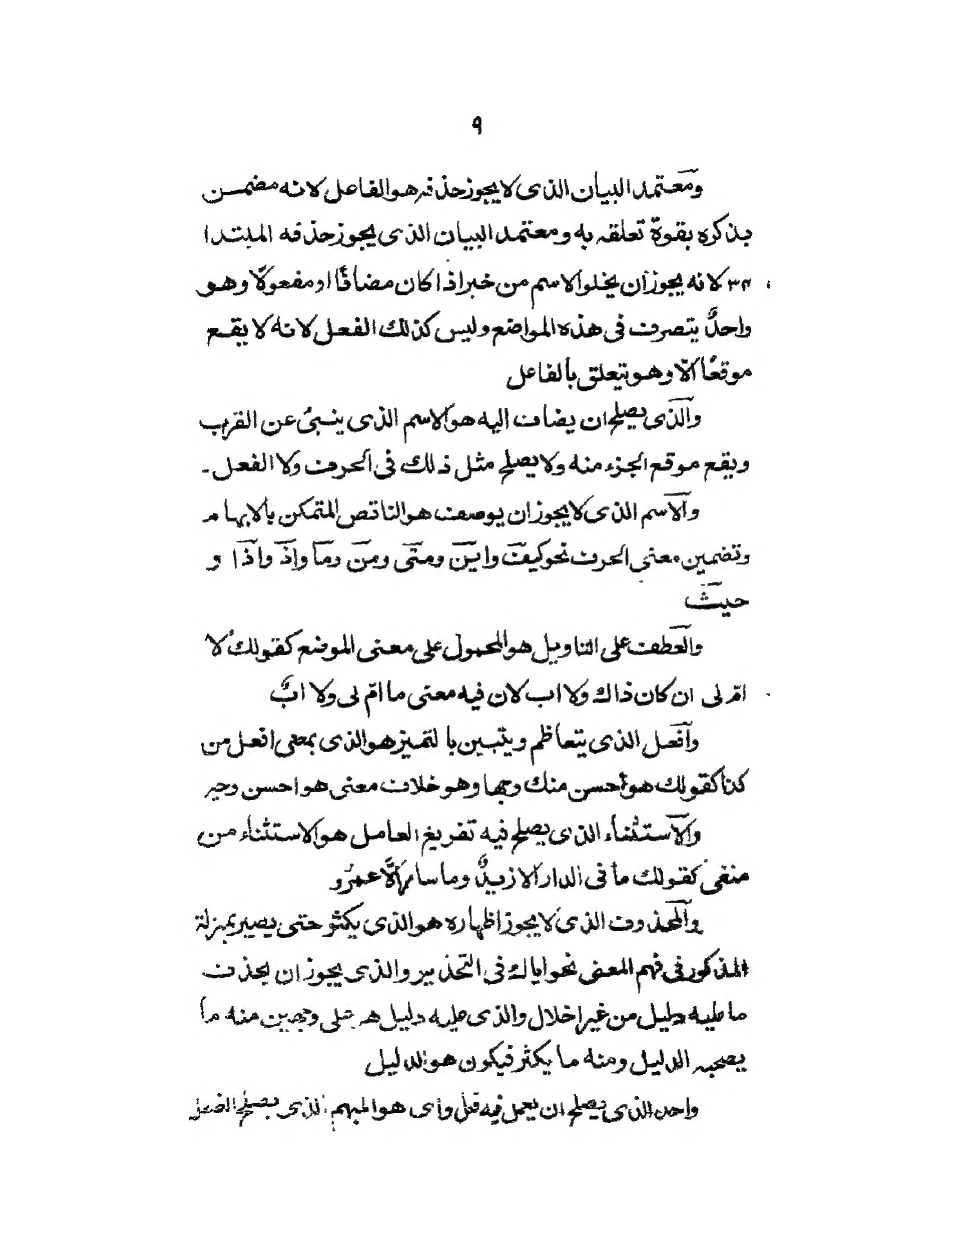 ٩
ومعتمد البيان الذى لا يجوز حذفه هو الفاعل لانه مضمن
بذكره بقوة تعلقه به ومعتمد البيان الذى يجوز حذفه المبتدا
لانه يجوز ان يخلو الاسم من خبر اذا كان مضافًا او مفعولًا وهو
واحدٌ يتصرف فى هذه المواضع وليس كذلك الفعل لانه لا يقع
موقعًا الّا وهو يتعلق بالفاعل
والذى يصلح ان يضاف اليه هو الاسم الذى ينبئ عن القرب
ويقع موقع الجزء منه ولا يصلح مثل ذلك فى الحرف ولا الفعل ۔
والاسم الذى لا يجوز ان يوصف هو الناقص المتمكن بالابهام
وتضمين معنى الحرف نحو كيفَ واينَ ومتى ومن وما واذ واذا و
حيث
والعطف على التاويل هو المحمول على معنى الموضع كقولك لا
امّ لى ان كان ذاك ولا اب لان فيه معنى ما امّ لى ولا ابٌ
وافعل الذى يتعاظم ويتبين بالتميز هو الذى بمعنى افعل من
كذا كقولك هو أحسن منك وجها وهو خلاف معنى هو احسن وجه
والاستثناء الذى يصلح فيه تفريغ العامل هو الاستثناء من
منفى كقولك ما فى الدار الا زيدٌ وما سار الّا عمرو
والمحذوف الذى لا يجوز اظهاره هو الذى يكثر حتى يصير بمنزلة
المذكور فى فهم المعنى نحو اياك فى التحذير والذى يجوز ان يحذف
ما عليه دليل من غير اخلال والذى عليه دليل هو على وجهين منه ما
يصحبه الدليل ومنه ما يكثر فيكون هو الدليل
واحد الذى يصلح ان يعمل فيه قبل واى هو المبهم الذى يصلح